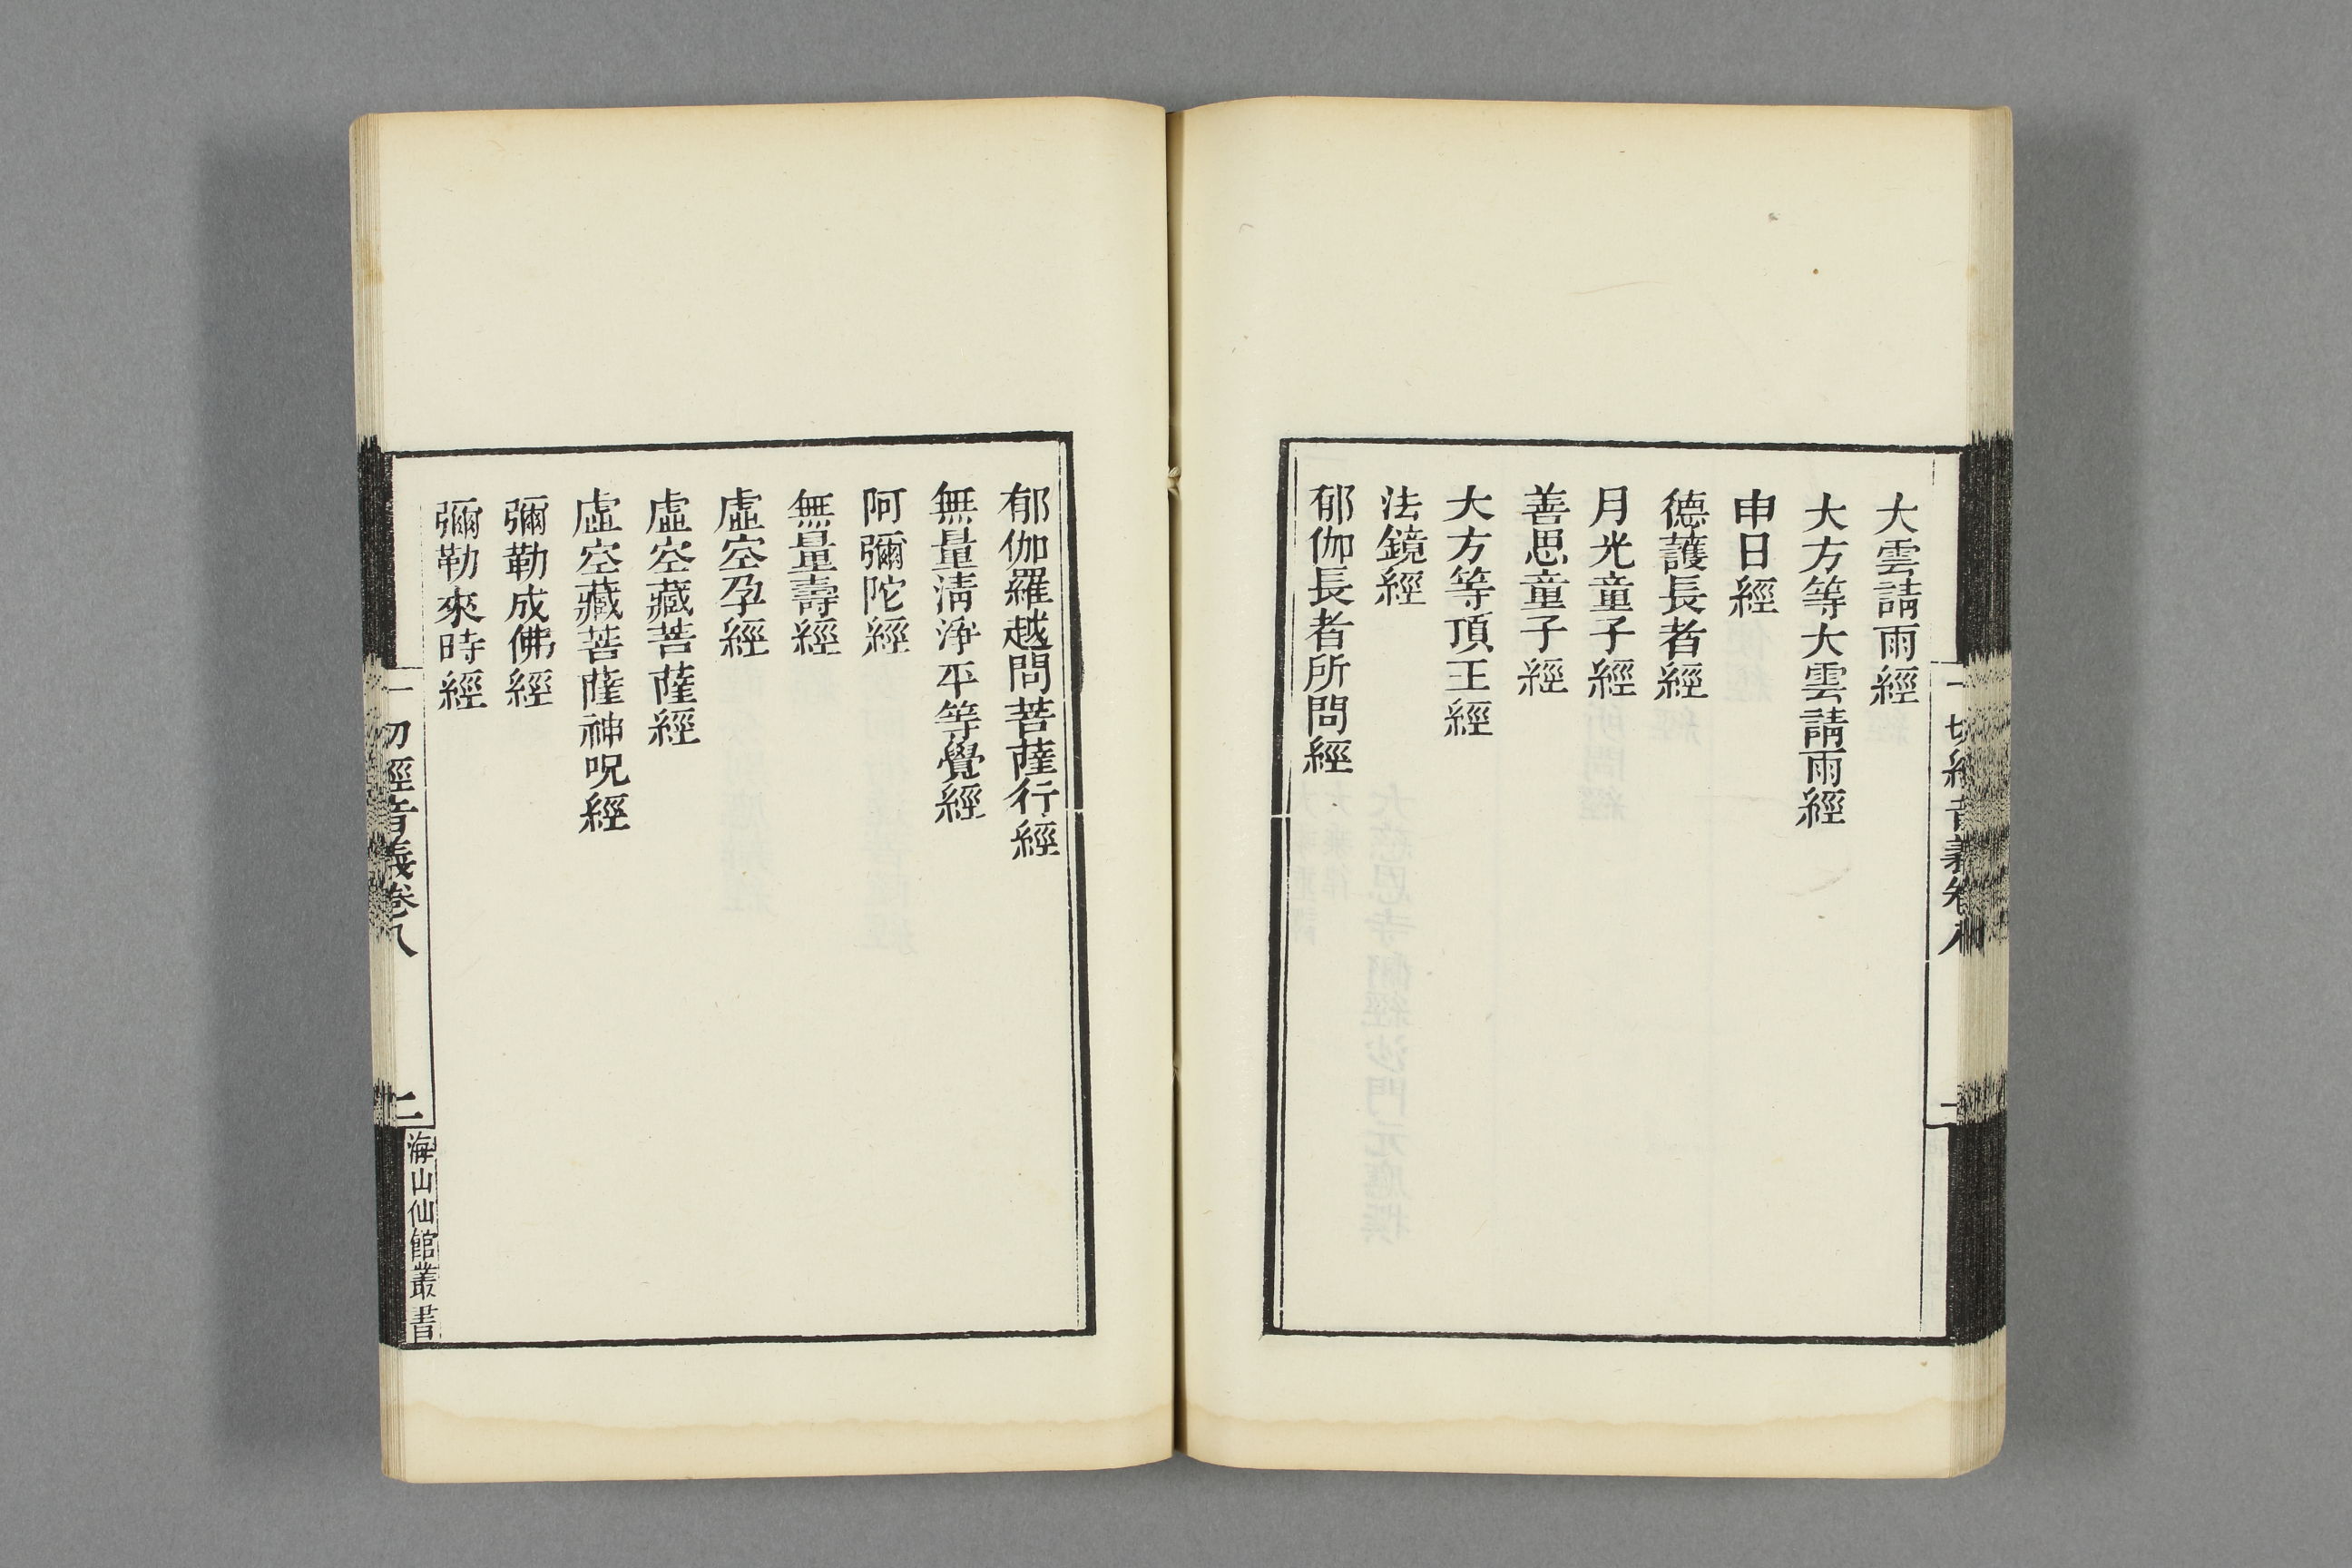 大雲請雨經
大方等大雲請雨經
申日經
德護長者經
月光童子經
善思童子經
大方等頂王經
法鏡經
郁伽長者所問經
一切經音義卷八
郁伽羅越問菩薩行經
無量清淨平等覺經
阿彌陀經
無量壽經
虛空孕經
虛空藏菩薩經
虛空藏菩薩神呪經
彌勒成佛經
彌勒來時經
一切經音義卷八
二
海山仙館叢書